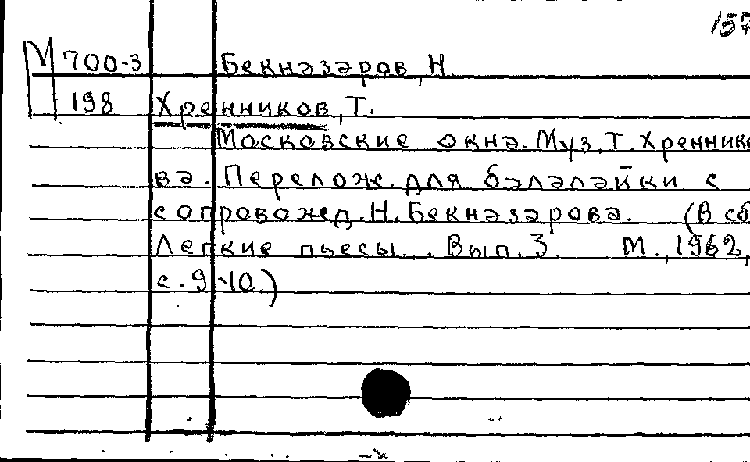 157
М 700-3 Бекназаров, Н.
198 Хренников, Т.
Московские окна. Муз. Т. Хреннико
ва. Перелож. для балалайки с
сопровожд. Н. Бекназарова. (В сб
Легкие пьесы. Вып. 3. М., 1962,
с. 9-10.)